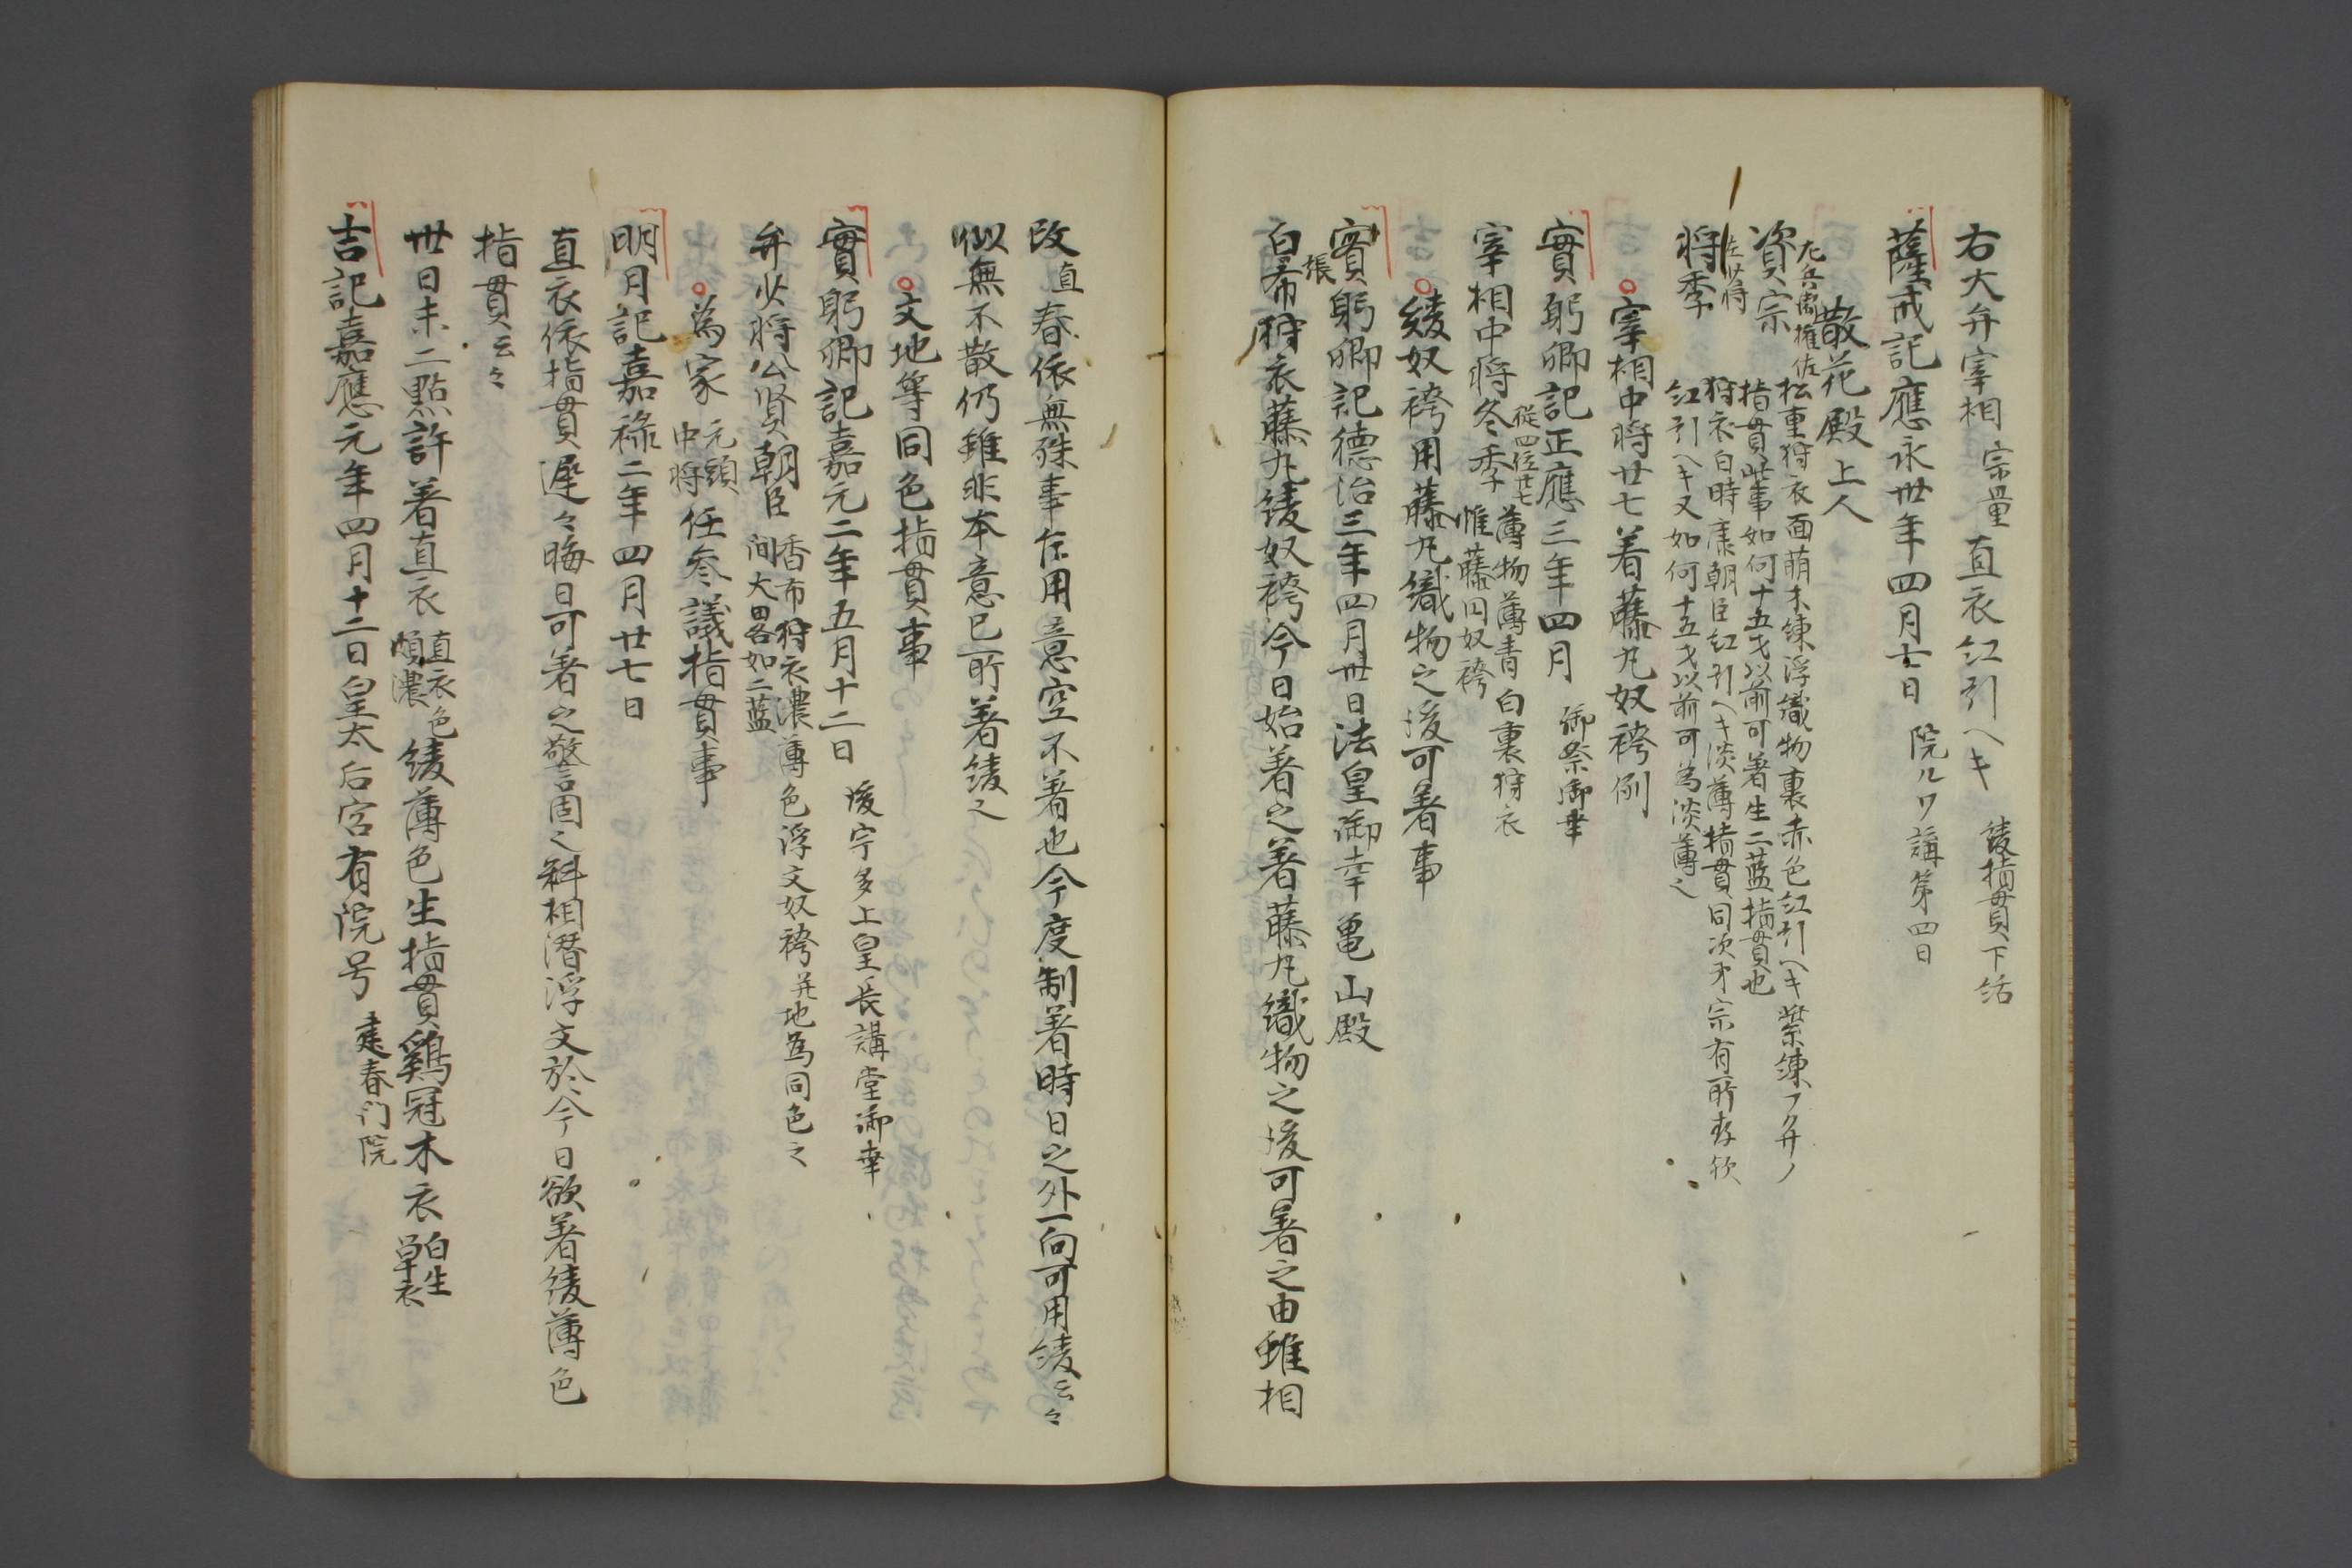 右大弁宰相宗量直衣紅引ヘキ 綾指貫下括
薩戒記應永卅年四月七日 院ルワ講第四日
散花殿上人
資宗 左兵衛権佐 松重狩衣面萌木練浮織物裏赤色紅引ヘキ紫練フクサノ
指貫此事如何十五才以前可著生二藍指貫也
将季 左少将 狩衣白時廉朝臣紅引ヘキ淡薄指貫同次才宗有所存歟
紅引ヘキ又如何十五才以前可為淡薄之
宰相中将廿七着藤丸奴袴例
實躬卿記正應三年四月 御祭御幸
宰相中将冬季 従四位廿七 薄物薄青白裏狩衣
帷藤円奴袴
綾奴袴用藤丸織物之後可著事
實躬卿記徳治三年四月卅日法皇御幸亀山殿
白張布狩衣藤丸綾奴袴今日始著之著藤丸織物之後可著之由雖相
改直春依無殊事仕用意空不著也今度制著時日之外一向可用綾云々
似無不散仍雖非本意已所著綾之
文地等同色指貫事
實躬卿記嘉元二年五月十二日 後宇多上皇長講堂御幸
弁少将公賢朝臣 香布狩衣濃薄色浮文奴袴并地為同色之
間大畧如二藍
為家 元頭中将 任参議指貫事
明月記嘉禄二年四月廿七日
直衣依指貫遅々晦日可著之警固之料相潜浮文於今日欲著綾薄色
指貫云々
卅日未二點許着直衣 直衣色頗濃 綾薄色生指貫鶏冠木衣 白生単衣
吉記嘉應元年四月十二日皇太后宮有院号 建春门院